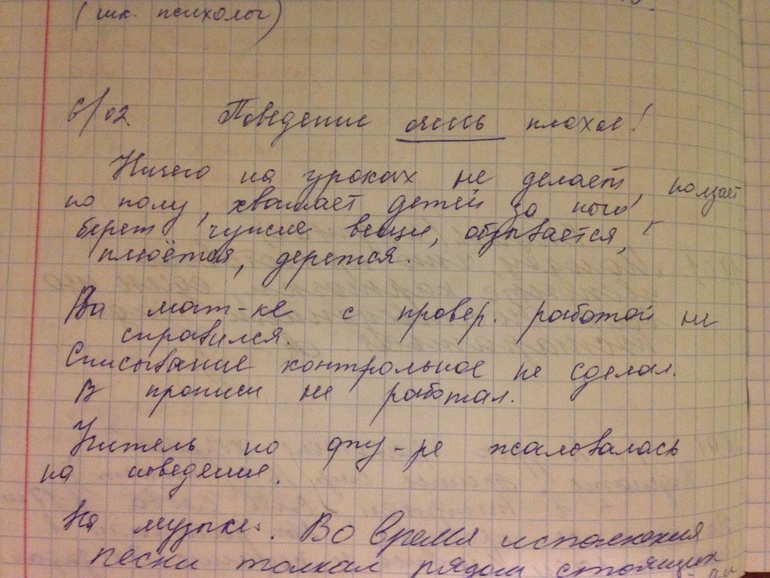 (шк. психолог)
6/02. Поведение очень плохое!
Ничего на уроках не делает, ползает
по полу, хватает детей за ноги
берет чужие вещи, обзывается,
плюётся, дерется.
На мат-ке с провер. работой не
справился.
Списывание контрольное не сделал.
В прописи не работал.
Учитель по физ-ре жаловалась
на поведение.
На музыке. Во время исполнения
песни толкал рядом стоящих